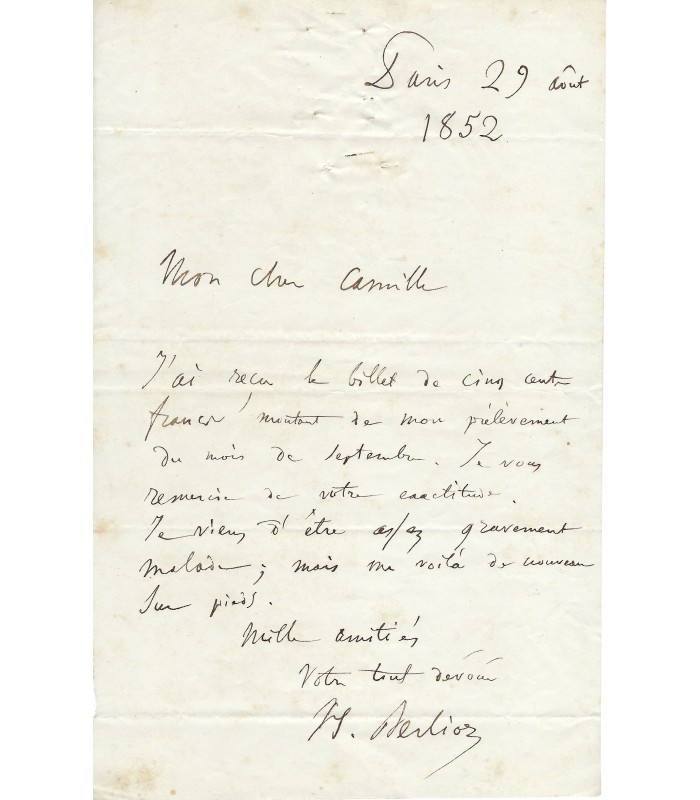 Paris 29 août
1852
Mon cher Camille
J'ai reçu le billet de cinq cents
francs montant de mon prélèvement
du mois de septembre. Je vous
remercie de votre exactitude.
Je viens d'être assez gravement
malade; mais me voilà de nouveau
sur pieds.
Mille amitiés
Votre tout dévoué
H. Berlioz